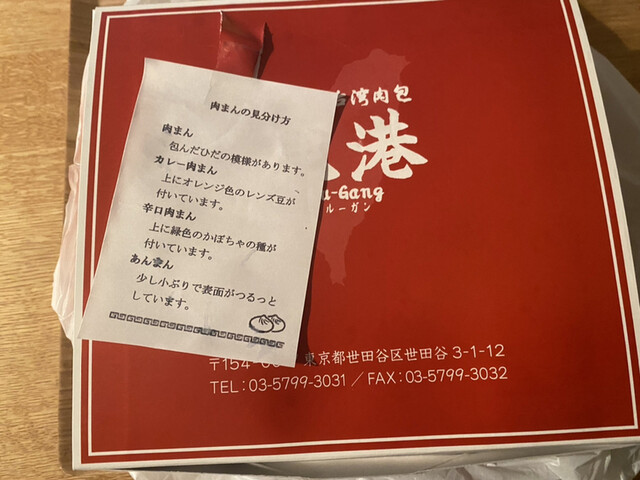 肉まんの見分け方
肉まん
包んだひだの模様があります。
カレー肉まん
上にオレンジ色のレンズ豆が
付いています。
辛口肉まん
上に緑色のかぼちゃの種が
付いています。
あんまん
少し小ぶりで表面がつるっと
しています。
台湾肉包
港
u-Gang
ルーガン
〒154-00 東京都世田谷区世田谷 3-1-12
TEL:03-5799-3031/FAX:03-5799-3032